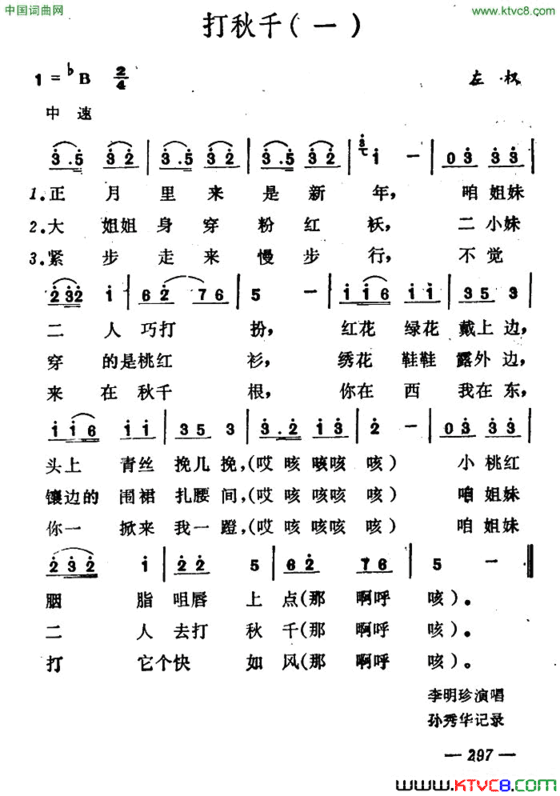 中国词曲网
www.ktvc8.com
打秋千(一)
1=♭B 2/4
左权
中速
3.5 3 2 | 3.5 3 2 | 3.5 3 2 | 1 — | 0 3 3 3 |
1.正月里来是新年, 咱姐妹
2.大姐姐身穿粉红袄, 二小妹
3.紧步走来慢步行, 不觉
2 3 2 1 | 6 2 7 6 | 5 — | 1 1 6 1 1 6 | 3 5 3 |
二人巧打扮, 红花绿花戴上边,
穿的是桃红衫, 绣花鞋鞋露外边,
来在秋千根, 你在西我在东,
1 1 6 1 1 | 3 5 3 | 3.2 1 3 | 2 — | 0 3 3 3 |
头上青丝挽几挽,(哎咳咳咳咳) 小桃红
镶边的围裙扎腰间,(哎咳咳咳咳) 咱姐妹
你一掀来我一蹬,(哎咳咳咳咳) 咱姐妹
2 3 2 1 | 2 5 5 | 6 2 7 6 | 5 — ‖
胭脂咀唇上点(那啊呼咳)。
二人去打秋千(那啊呼咳)。
打它个快如风(那啊呼咳)。
李明珍演唱
孙秀华记录
— 297 —
www.KTVC8.com